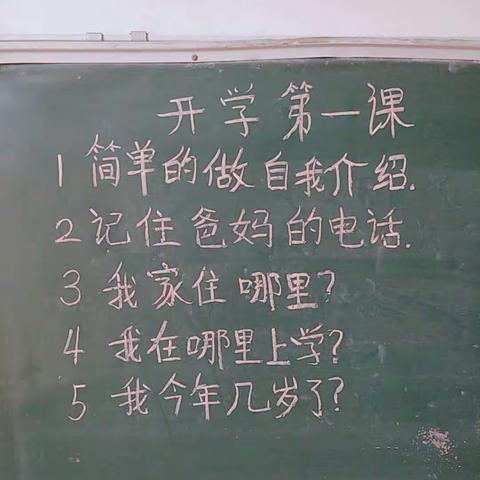 开学第一课
1 简单的做自我介绍.
2 记住爸妈的电话.
3 我家住哪里?
4 我在哪里上学?
5 我今年几岁了?